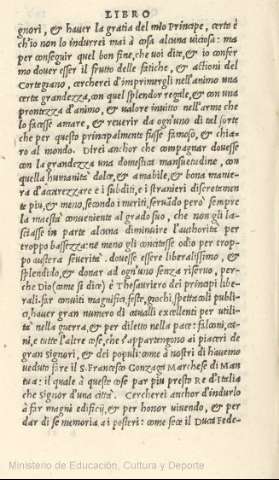 LIBRO
gnori, & hauer la gratia del mio Principe, certo è
ch'io non lo indurrei mai à cosa alcuna viciosa: ma
per conseguir quel bon fine, che uoi dite, & io confer
mo douer esser il frutto delle fatiche, & actioni del
Cortegiano, cercherei d'imprimergli nell'animo una
certa grandezza, con quel splendor regale, & con una
prontezza d'animo, & ualore inuitto nell'arme che
lo facesse amare, & reuerir da ogn'uno di tal sorte
che per questo principalmente fusse famoso, & chia-
ro al mondo. Direi anchor che compagnar douesse
con la grandezza una domestica mansuetudine, con
quella humanità dolce, & amabile, & bona manie
ra d'accarezzare e i subditi, e i stranieri discretamen
te piu, & meno, secondo i meriti, seruādo però sempre
la maestà conueniente al grado suo, che non gli la-
sciasse in parte alcuna diminuire l'authorità per
troppo bassezza: ne meno gli concitasse odio per trop-
po austera seuerità. douesse essere liberalissimo, &
splendido, & donar ad ogn'uno senza riseruo, per-
che Dio (come si dice) è Thesauriero dei principi libe-
rali. far conuiti magnifici, feste, giochi, spettacoli publi-
ci, hauer gran numero di caualli excellenti per utili-
tà nella guerra, & per diletto nella pace: falconi, cā-
ni, e tutte l'altre cose, che s'appartengono ai piaceri de
gran Signori, & dei populi: come à nostri dì hauemo
ueduto fare il S. Francesco Gonzaga Marchese di Man
tua: il quale à queste cose par piu presto Re d'Italia
che Signor d'una città. Cercherei anchor d'indurlo
à far magni edificij, & per honor uiuendo, & per
dar di se memoria ai posteri: come fece il Duca Fede-
Ministerio de Educación, Cultura y Deporte